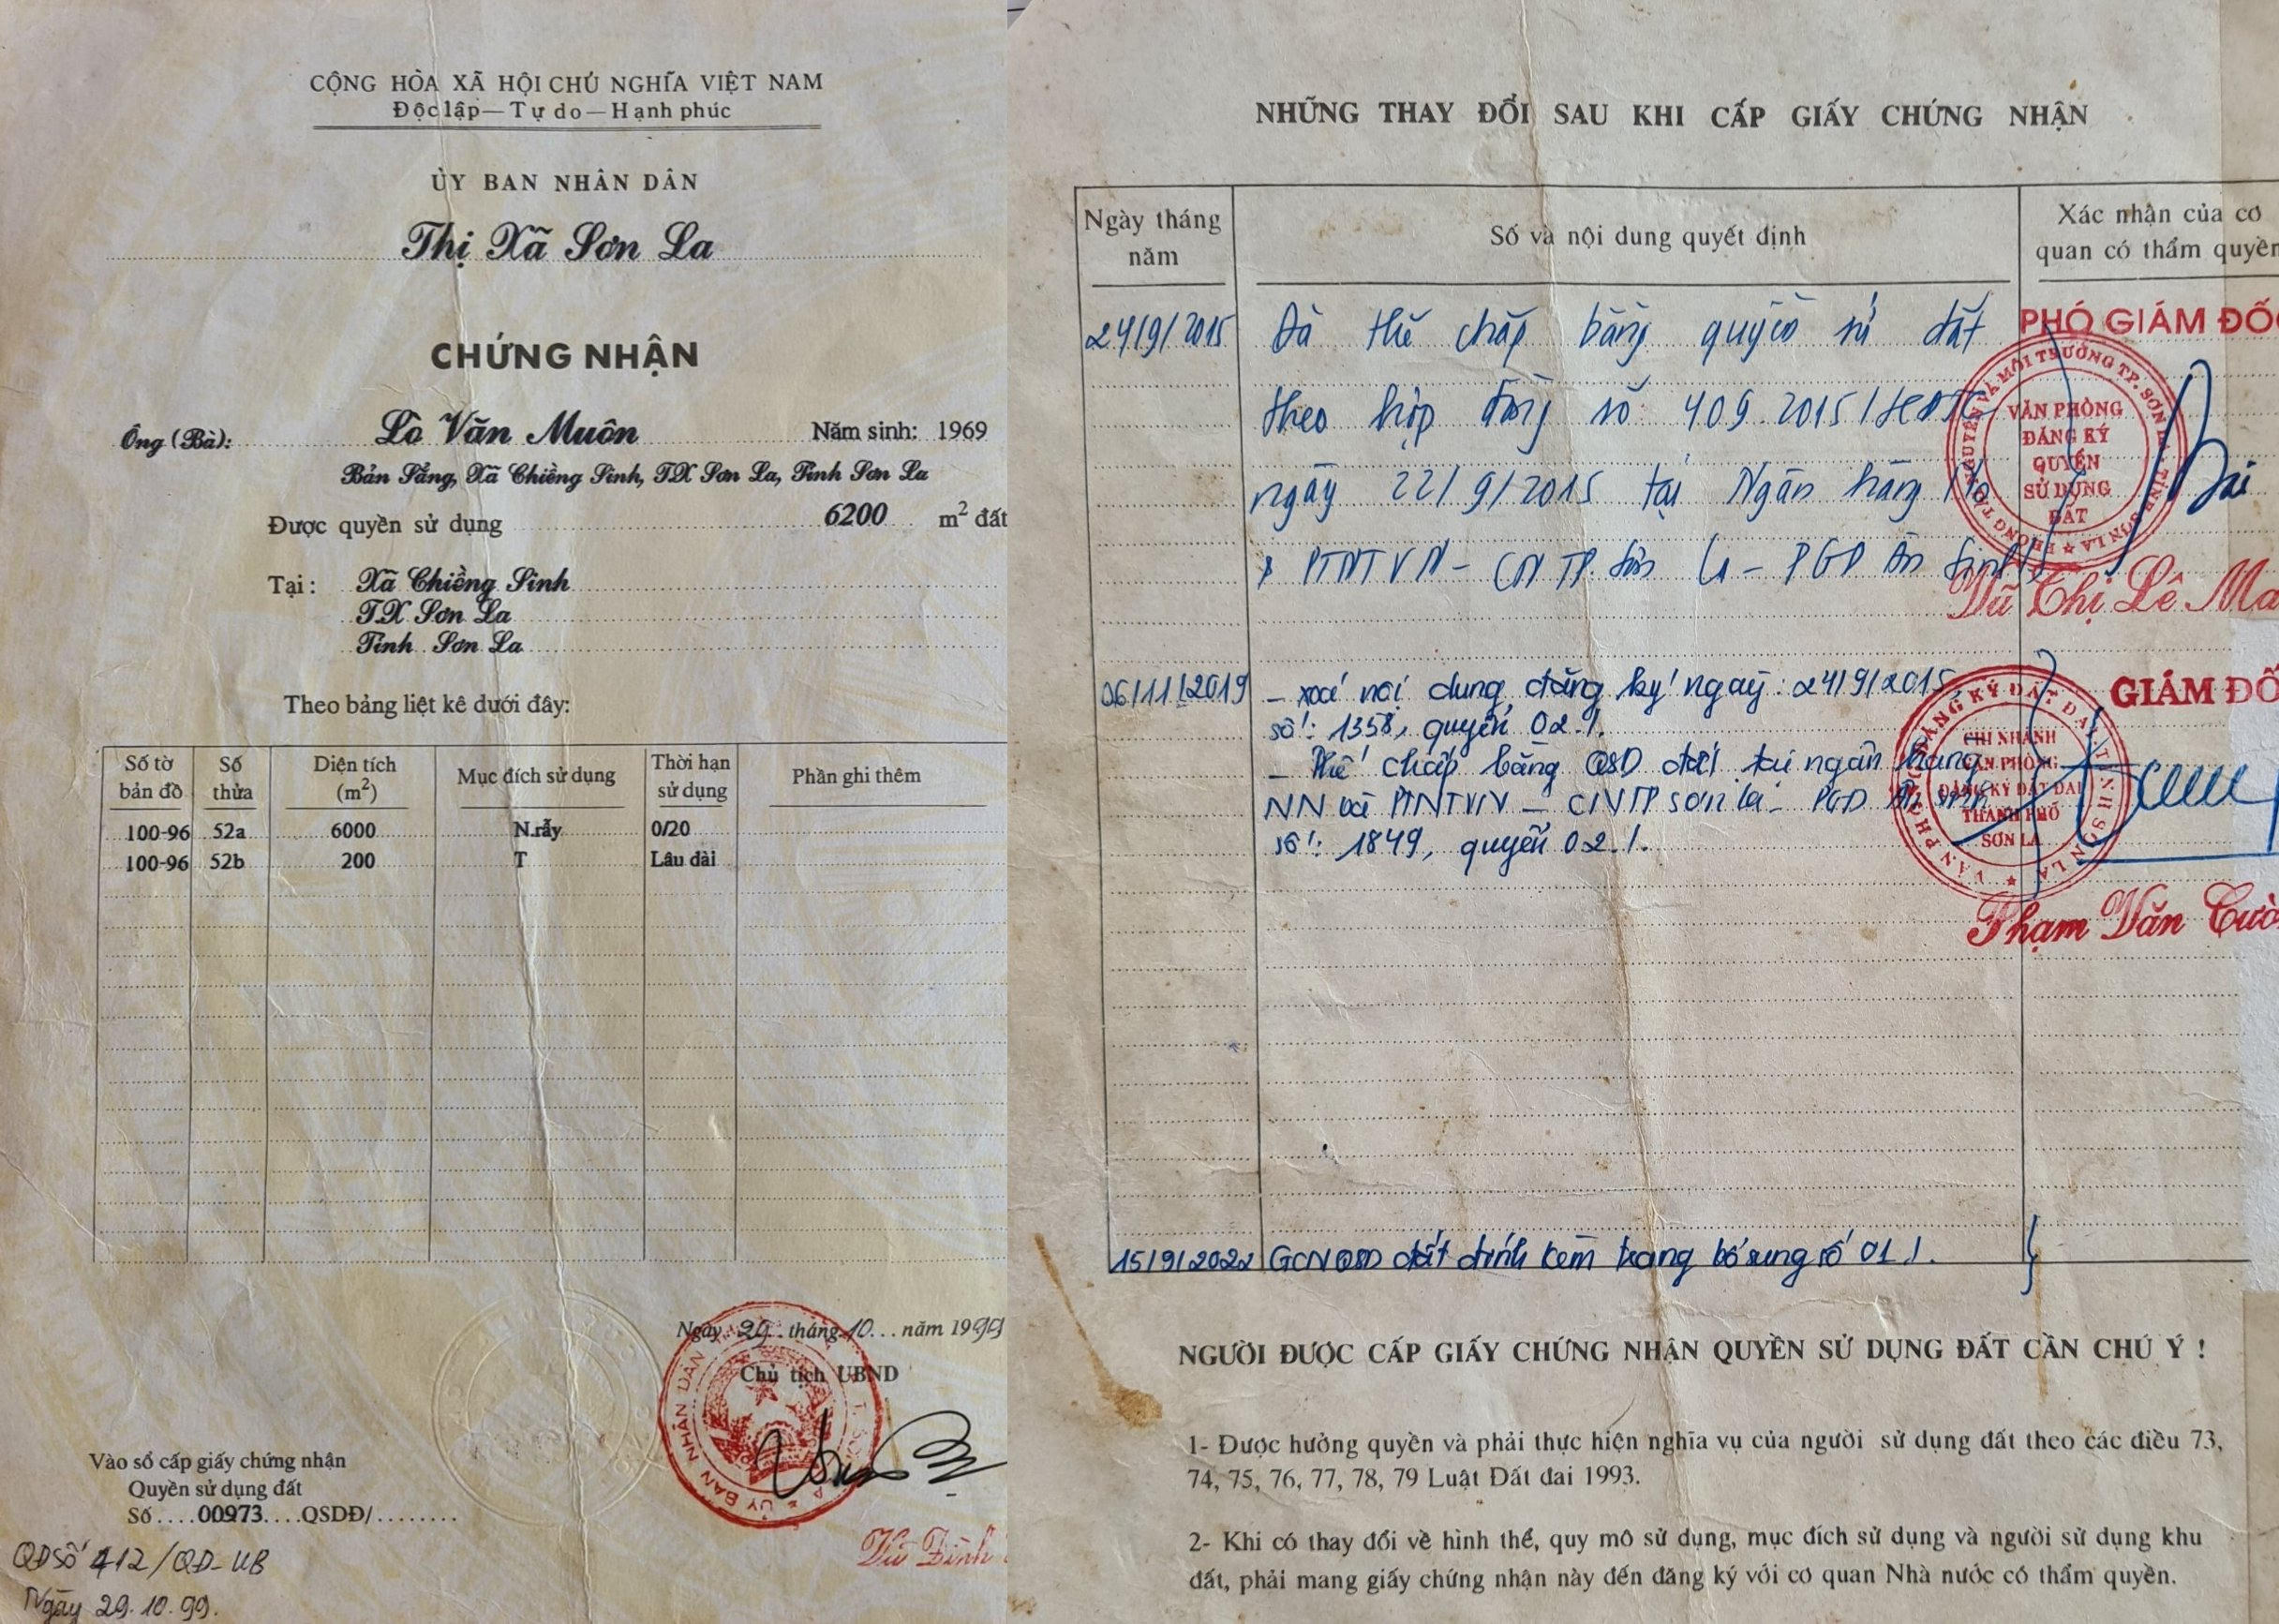 CỘNG HÒA XÃ HỘI CHỦ NGHĨA VIỆT NAM
Độc lập — Tự do — Hạnh phúc
ỦY BAN NHÂN DÂN
Thị Xã Sơn La
CHỨNG NHẬN
Ông (Bà): Lò Văn Muôn Năm sinh: 1969
Bản Sẳng, Xã Chiềng Sinh, TX Sơn La, Tỉnh Sơn La
Được quyền sử dụng 6200 m² đất
Tại : Xã Chiềng Sinh
TX Sơn La
Tỉnh Sơn La
Theo bảng liệt kê dưới đây:
Số tờ bản đồ Số thửa Diện tích (m²) Mục đích sử dụng Thời hạn sử dụng Phần ghi thêm
100-96 52a 6000 N.rẫy 0/20
100-96 52b 200 T Lâu dài
Ngày 29 tháng 10 năm 1999
Chủ tịch UBND
Vũ Đình
Vào sổ cấp giấy chứng nhận
Quyền sử dụng đất
Số....00973....QSDĐ/........
QĐ số 412/QĐ-UB
Ngày 29.10.99.
NHỮNG THAY ĐỔI SAU KHI CẤP GIẤY CHỨNG NHẬN
Ngày tháng năm Số và nội dung quyết định Xác nhận của cơ quan có thẩm quyền
24/9/2015 Đã thế chấp bằng quyền sử đất
theo hợp đồng số 409.2015/HĐTC
ngày 22/9/2015 tại Ngân hàng No
& PTNTVN - CN TP Sơn La - PGD
PHÓ GIÁM ĐỐC
VĂN PHÒNG
ĐĂNG KÝ
QUYỀN
SỬ DỤNG
ĐẤT
Vũ Thị Lê Ma
06/11/2019 - xoá nội dung đăng ký ngày: 24/9/2015
số: 1358, quyển 02./.
- Thế chấp bằng QSD đất tại ngân hàng
NN và PTNTVN - CNTP Sơn La - PGD
số: 1849, quyển 02./.
GIÁM ĐỐ
CHI NHÁNH
VĂN PHÒNG
ĐĂNG KÝ ĐẤT ĐAI
THÀNH PHỐ
SƠN LA
Phạm Văn Cườ
15/9/2022 GCNQSD đất đính kèm trang bổ sung số 01./.
NGƯỜI ĐƯỢC CẤP GIẤY CHỨNG NHẬN QUYỀN SỬ DỤNG ĐẤT CẦN CHÚ Ý !
1- Được hưởng quyền và phải thực hiện nghĩa vụ của người sử dụng đất theo các điều 73,
74, 75, 76, 77, 78, 79 Luật Đất đai 1993.
2- Khi có thay đổi về hình thể, quy mô sử dụng, mục đích sử dụng và người sử dụng khu
đất, phải mang giấy chứng nhận này đến đăng ký với cơ quan Nhà nước có thẩm quyền.